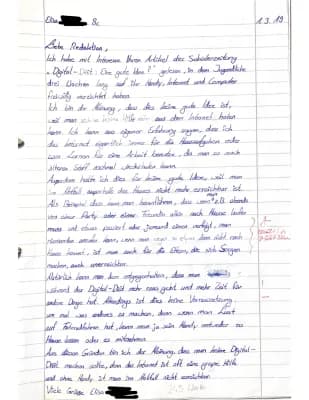 Elisa 8c 1.3.19
Liebe Redaktion,
Ich habe mit Interesse Ihren Artikel der Schülerzeitung
„Digital-Diät: Eine gute Idee?" gelesen, in dem Jugendliche
drei Wochen lang auf ihr Handy, Internet und Computer
freiwillig verzichtet haben.
Ich bin der Meinung, dass dies keine gute Idee ist,
weil man keine Hilfe aus dem Internet haben
kann. Ich kann aus eigener Erfahrung sagen, dass ich
das Internet eigentlich immer für die Hausaufgaben oder
zum Lernen für eine Arbeit benutze, da man so auch
älteren Stoff nochmal wiederholen kann.
Außerdem halte ich dies für keine gute Idee, weil man
im Notfall außerhalb des Hauses nicht mehr erreichbar ist.
Als Beispiel dazu kann man anführen, dass wenn man z.B. abends
von einer Party oder einer Freundin allein nach Hause laufen
muss und etwas passiert oder jemand einen verfolgt, man
niemanden anrufen kann, wenn man dann nicht nach
Hause kommt, ist man auch für die Eltern, die sich Sorgen
machen, auch unerreichbar.
Natürlich kann man dem entgegenhalten, dass man
während der Digital-Diät mehr rausgeht und mehr Zeit für
andere Dinge hat. Allerdings ist dies keine Voraussetzung,
um mal was anderes zu machen, denn wenn man Lust
auf Fahrradfahren hat, kann man ja sein Handy entweder zu
Hause lassen oder es mitnehmen.
Aus diesen Gründen bin ich der Meinung, dass man keine Digital-
Diät machen sollte, denn das Internet ist oft eine große Hilfe
und ohne Handy ist man im Notfall nicht erreichbar.
Viele Grüße Elisa